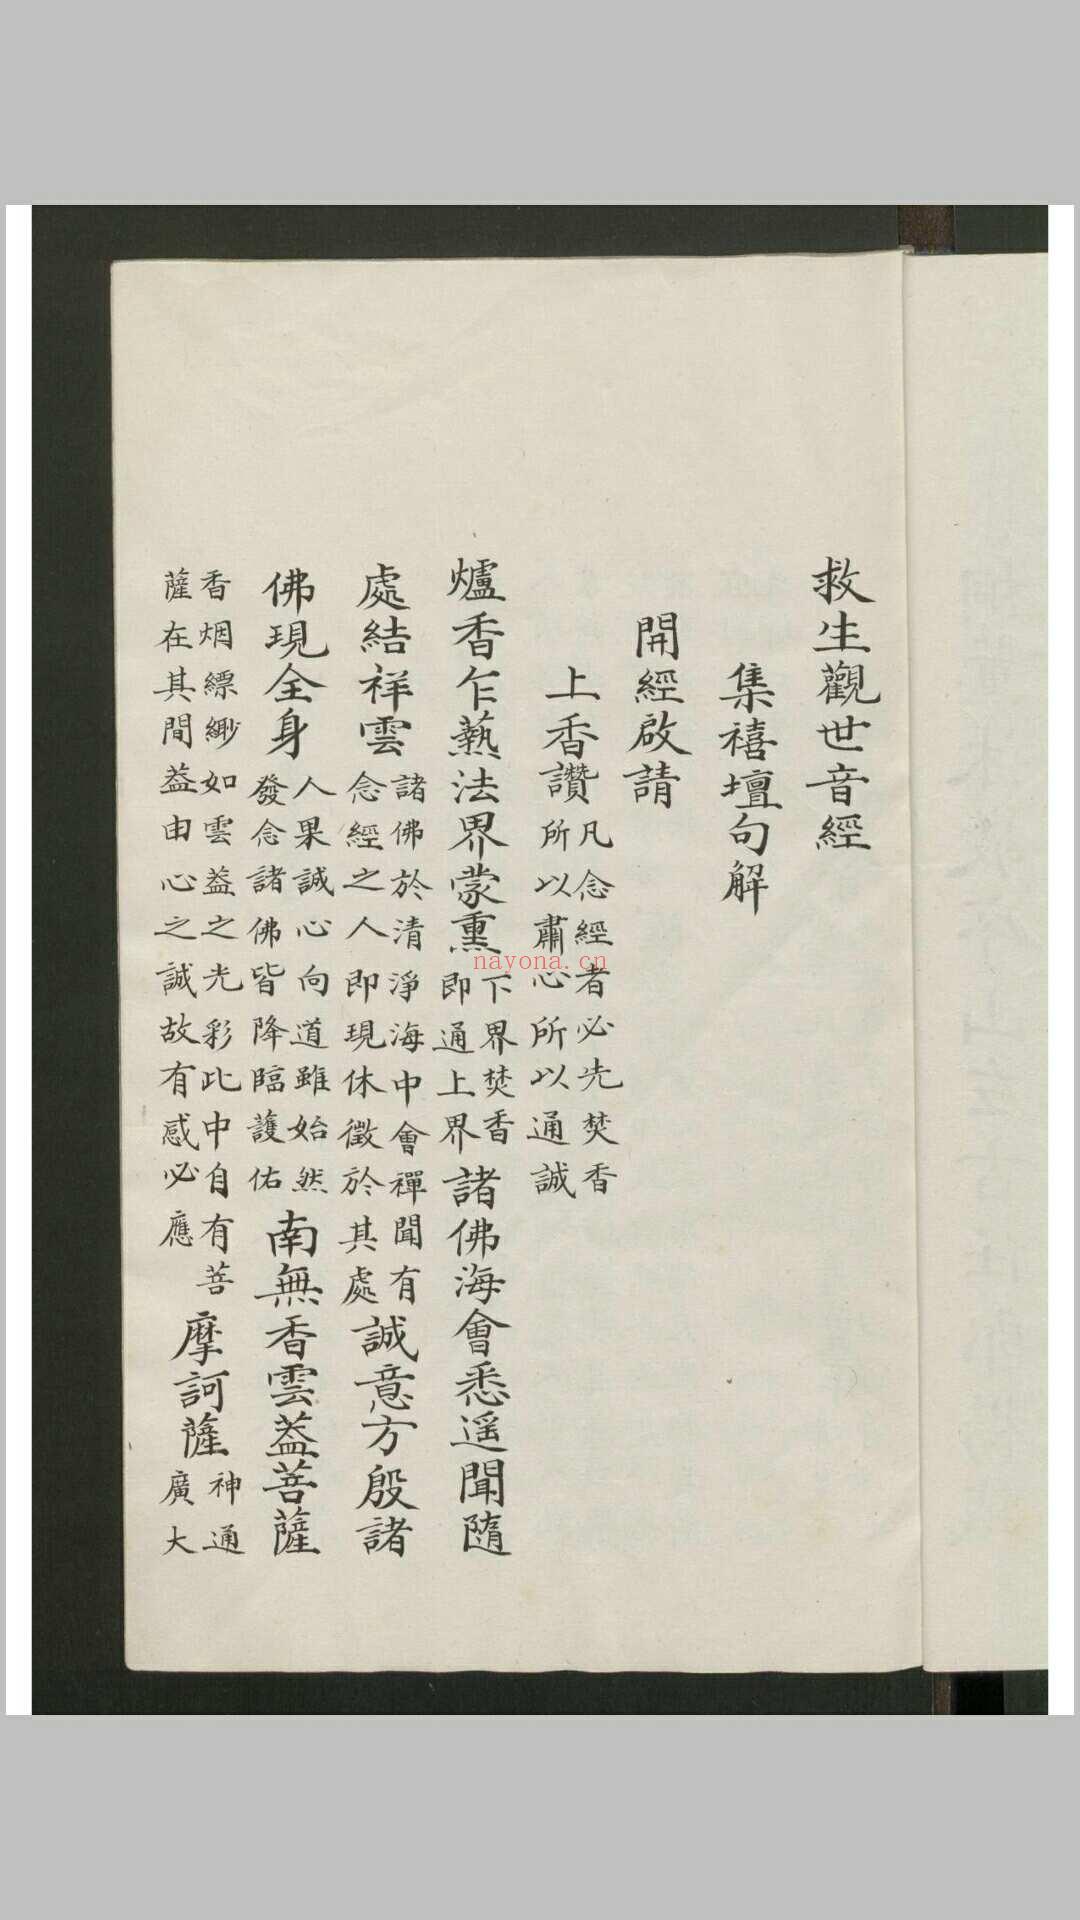 救生觀世音經
集禧壇句解
開經啟請
上香讚凡念經者必先焚香所以肅心所以通誠
爐香乍爇法界蒙熏下界焚香即通上界諸佛海會悉遥聞隨
處結祥雲諸佛於清淨海中會禪聞有念經之人即現休徵於其處誠意方殷諸
佛現全身人果誠心向道雖始然發念諸佛皆降臨護佑南無香雲葢菩薩
香烟縹緲如雲葢之光彩此中自有菩薩在其間葢由心之誠故有感必應摩訶薩神通廣大
nayona.cn